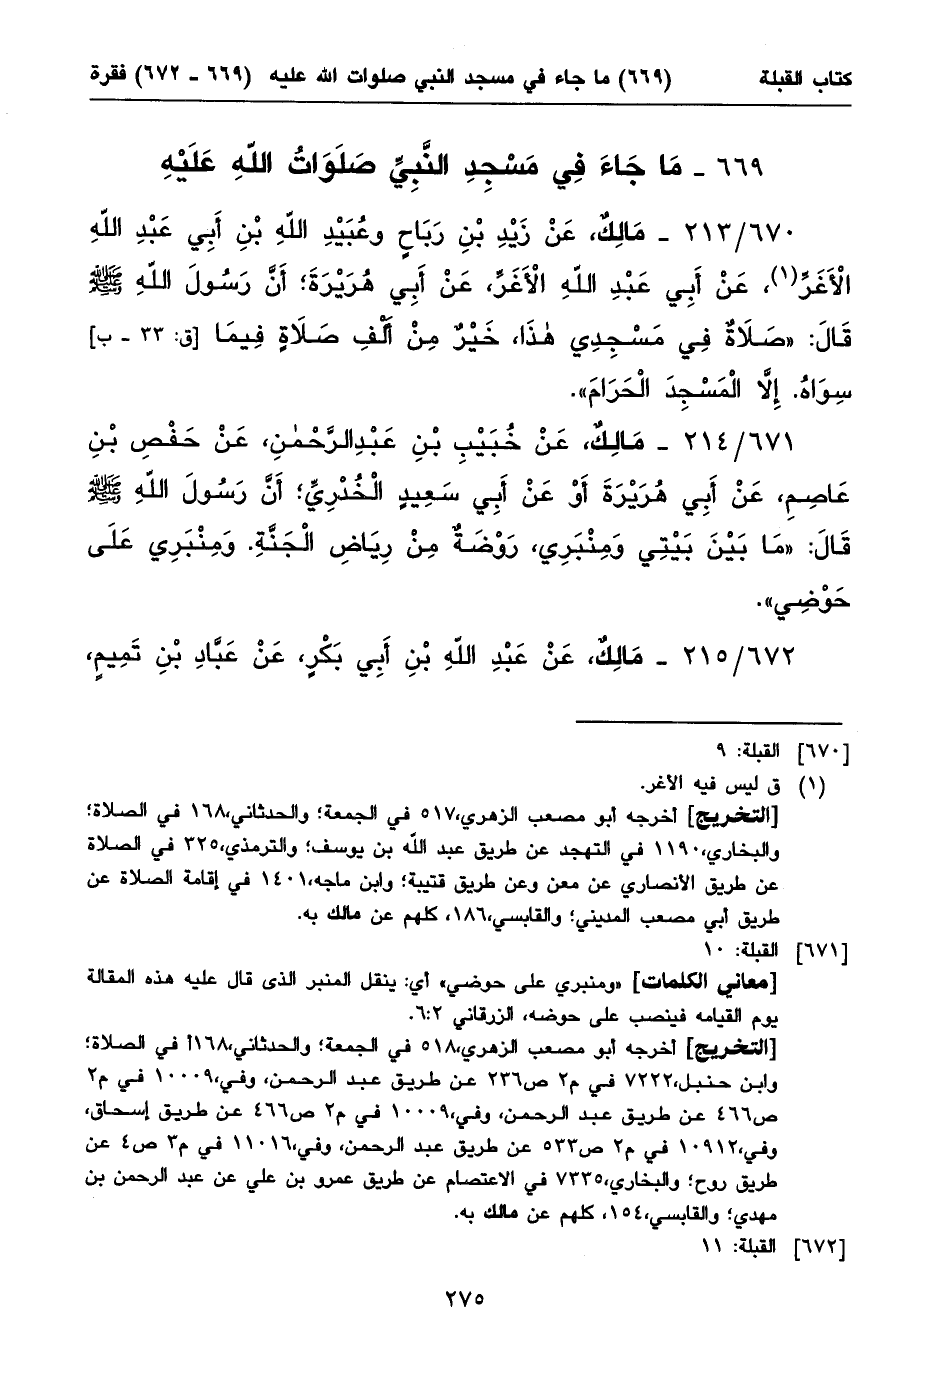 كتاب القبلة (٦٦٩) ما جاء في مسجد النبي صلوات الله عليه (٦٦٩ ـ ٦٧٢) فقرة
٦٦٩ ـ مَا جَاءَ فِي مَسْجِدِ النَّبِيِّ صَلَوَاتُ اللَّهِ عَلَيْهِ
٢١٣/٦٧٠ ـ مَالِكٌ، عَنْ زَيْدِ بْنِ رَبَاحٍ وعُبَيْدِ اللَّهِ بْنِ أَبِي عَبْدِ اللَّهِ
الْأَغَرِّ(١)، عَنْ أَبِي عَبْدِ اللَّهِ الْأَغَرِّ، عَنْ أَبِي هُرَيْرَةَ؛ أَنَّ رَسُولَ اللَّهِ ﷺ
قَالَ: «صَلَاةٌ فِي مَسْجِدِي هٰذَا، خَيْرٌ مِنْ أَلْفِ صَلَاةٍ فِيمَا [ق: ٣٣ ـ ب]
سِوَاهُ. إِلَّا الْمَسْجِدَ الْحَرَامَ».
٢١٤/٦٧١ ـ مَالِكٌ، عَنْ خُبَيْبِ بْنِ عَبْدِالرَّحْمٰنِ، عَنْ حَفْصِ بْنِ
عَاصِمٍ، عَنْ أَبِي هُرَيْرَةَ أَوْ عَنْ أَبِي سَعِيدٍ الْخُدْرِيِّ؛ أَنَّ رَسُولَ اللَّهِ ﷺ
قَالَ: «مَا بَيْنَ بَيْتِي وَمِنْبَرِي، رَوْضَةٌ مِنْ رِيَاضِ الْجَنَّةِ. وَمِنْبَرِي عَلَى
حَوْضِي».
٢١٥/٦٧٢ ـ مَالِكٌ، عَنْ عَبْدِ اللَّهِ بْنِ أَبِي بَكْرٍ، عَنْ عَبَّادِ بْنِ تَمِيمٍ،
[٦٧٠] القبلة: ٩
(١) ق ليس فيه الأغر.
[التخريج] أخرجه أبو مصعب الزهري،٥١٧ في الجمعة؛ والحدثاني،١٦٨ في الصلاة؛
والبخاري،١١٩٠ في التهجد عن طريق عبد الله بن يوسف؛ والترمذي،٣٢٥ في الصلاة
عن طريق الأنصاري عن معن وعن طريق قتيبة؛ وابن ماجه،١٤٠١ في إقامة الصلاة عن
طريق أبي مصعب المديني؛ والقابسي،١٨٦، كلهم عن مالك به.
[٦٧١] القبلة: ١٠
[معاني الكلمات] «ومنبري على حوضي» أي: ينقل المنبر الذى قال عليه هذه المقالة
يوم القيامه فينصب على حوضه، الزرقاني ٦:٢.
[التخريج] أخرجه أبو مصعب الزهري،٥١٨ في الجمعة؛ والحدثاني،١٦٨أ في الصلاة؛
وابن حنبل،٧٢٢٢ في م٢ ص٢٣٦ عن طريق عبد الرحمن، وفي،١٠٠٠٩ في م٢
ص٤٦٦ عن طريق عبد الرحمن، وفي،١٠٠٠٩ في م٢ ص٤٦٦ عن طريق إسحاق،
وفي،١٠٩١٢ في م٢ ص٥٣٣ عن طريق عبد الرحمن، وفي،١١٠١٦ في م٣ ص٤ عن
طريق روح؛ والبخاري،٧٣٣٥ في الاعتصام عن طريق عمرو بن علي عن عبد الرحمن بن
مهدي؛ والقابسي،١٥٤، كلهم عن مالك به.
[٦٧٢] القبلة: ١١
٢٧٥